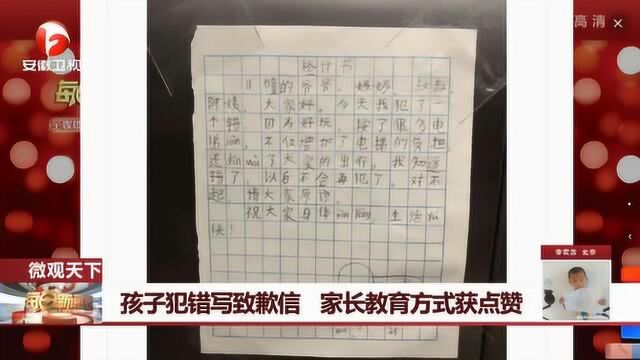 高清
安徽卫视
检讨书
11幢的爷爷、奶奶、叔叔、
阿姨,大家好。今天我犯了一
个错,因为好玩,按了很多电
梯niǔ,不仅增加了电梯的负担,
还dān wù了大家的出行。我知道
错了,以后不会再犯了。对不
起,请大家原谅。
祝大家身体jiàn kāng,生活yú
快!
微观天下
每日新闻报
李宾宫 北京
孩子犯错写致歉信 家长教育方式获点赞